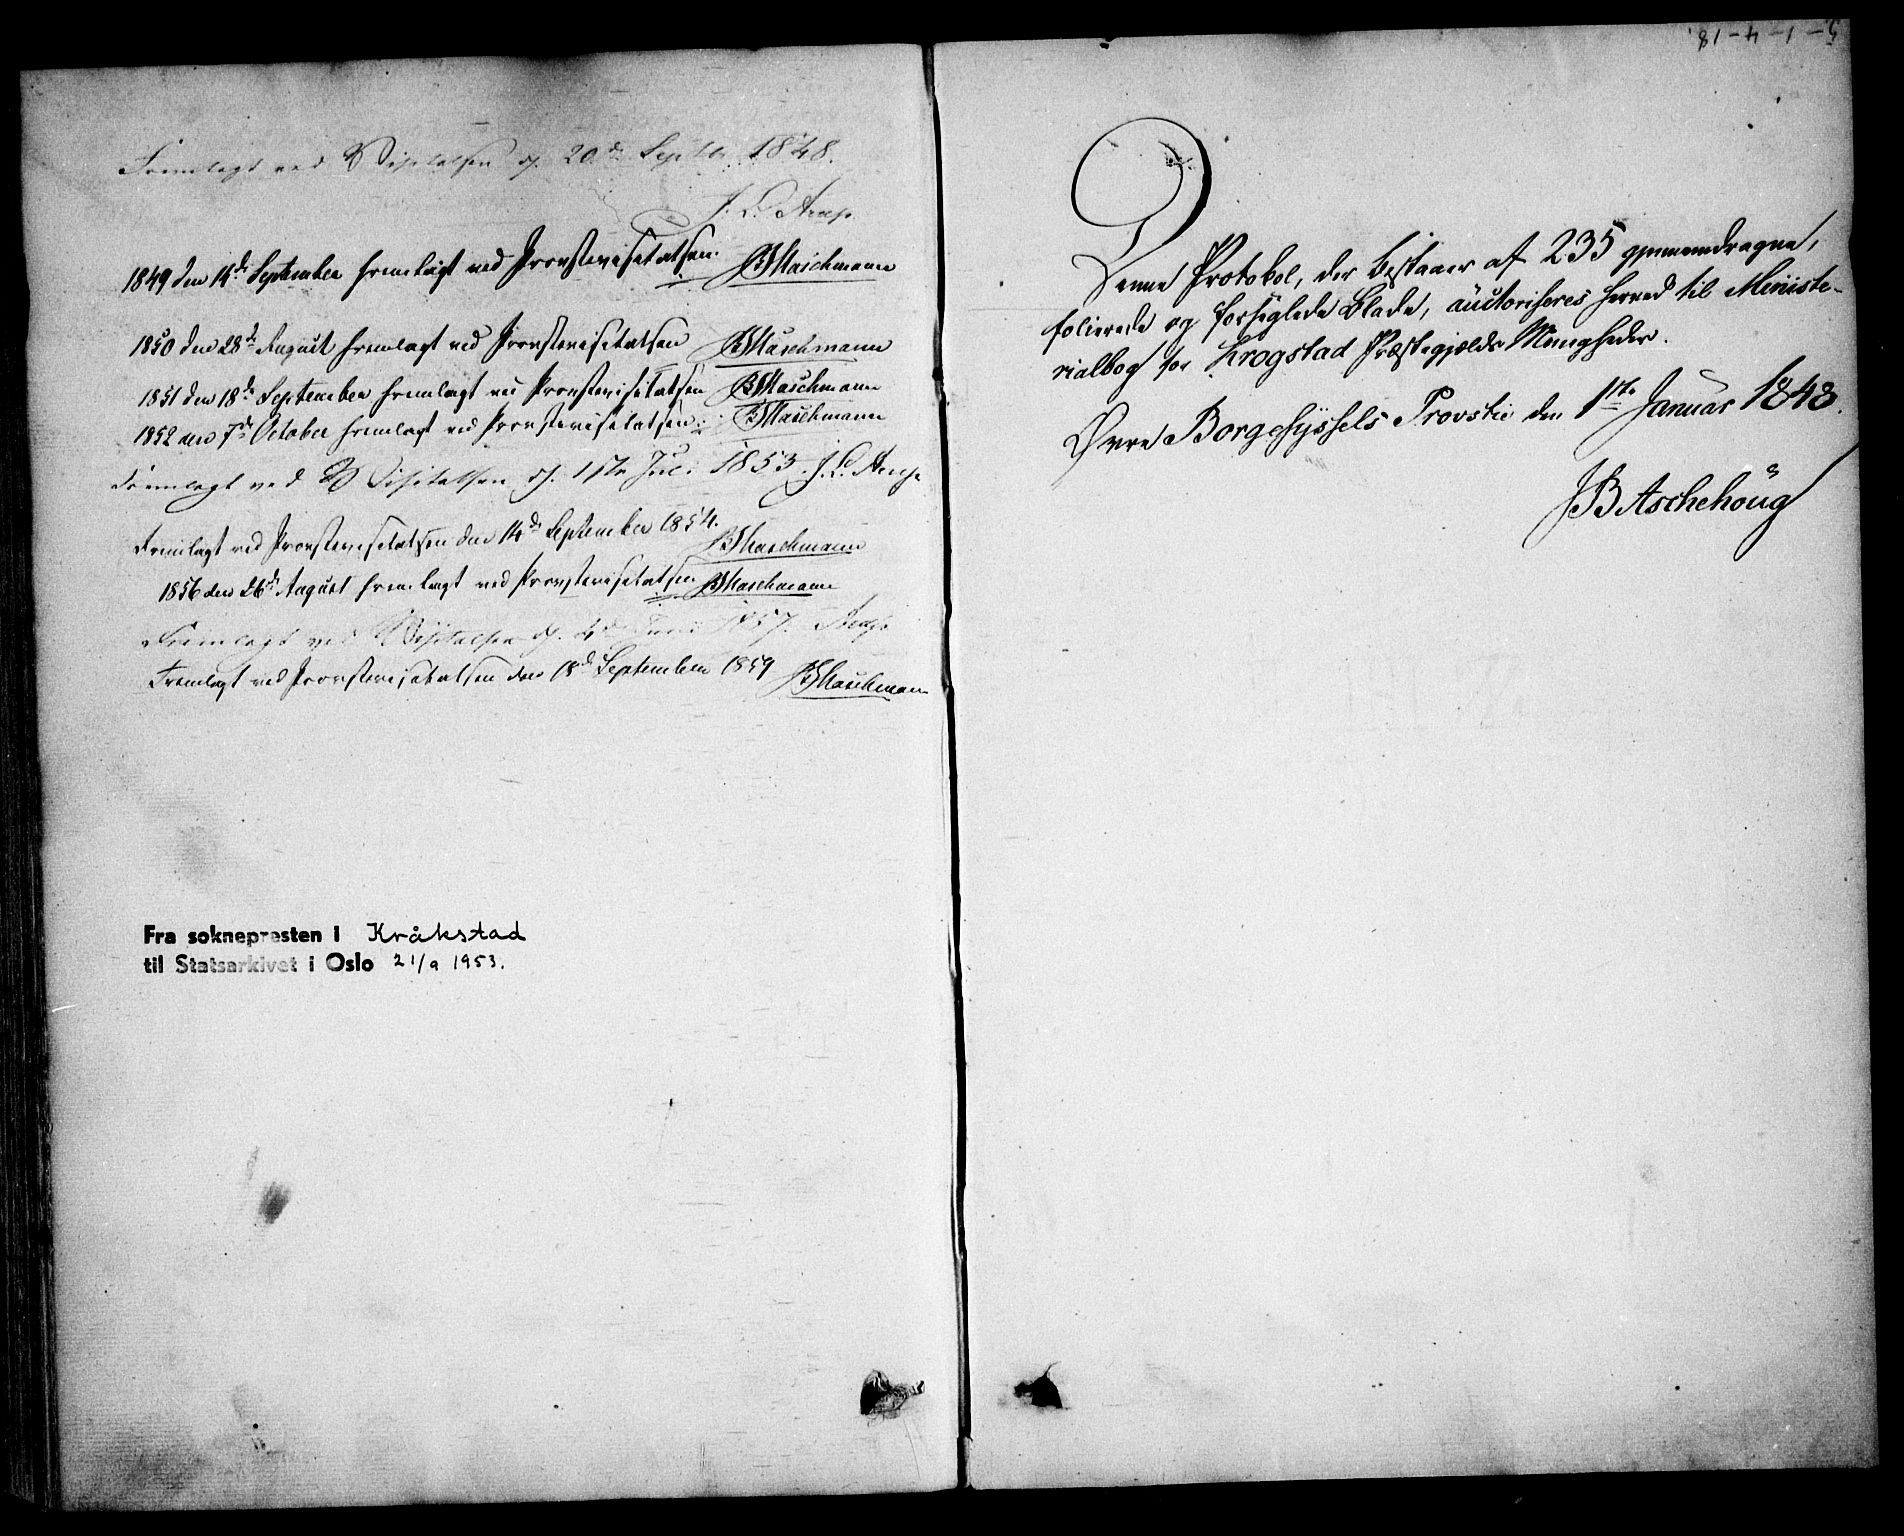 Fremlagt ved Visitatsen d. 20de Septbr. 1848.
J. L. Arup.
1849 den 14de September fremlagt ved Provstevisitatsen. JS Maschmann
1850 den 28de August fremlagt ved Provstevisitatsen JS Maschmann
1851 den 18de September fremlagt ved Provstevisitatsen JS Maschmann
1852 den 7de October fremlagt ved Provstevisitatsen JS Maschmann
Fremlagt ved Visitatsen d. 1ste Juli 1853. J. L. Arup
Fremlagt ved Provstevisitatsen den 14de September 1854. JS Maschmann
1856 den 26de August fremlagt ved Provstevisitatsen JS Maschmann
Fremlagt ved Visitatsen d. Juni 1857. Arup
Fremlagt ved Provstevisitatsen den 18de September 1859 JS Maschmann
Fra sokneprosten i Kråkstad
til Statsarkivet i Oslo 21/9 1953.
5-1-4-18.
Denne Protokol, der bestaaer af 235 gjennemdragne,
folierede og forseglede Blade, autoriseres herved til Ministe-
rialbog for Krogstad Præstegjælds Menigheder.
Øvre Borgesyssels Provstie den 1ste Januar 1848.
JB Aschehoug